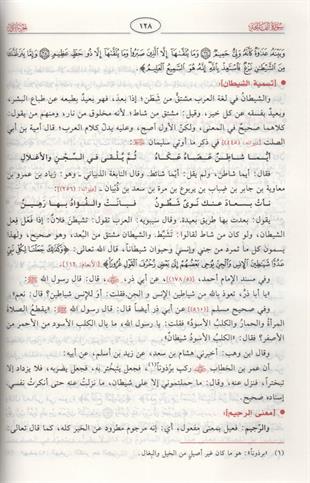 سورة الفاتحة ١٢٨
وَبَيْنَهُ عَدَاوَةٌ كَأَنَّهُ وَلِيٌّ حَمِيمٌ وَمَا يُلَقَّاهَا إِلَّا الَّذِينَ صَبَرُوا وَمَا يُلَقَّاهَا إِلَّا ذُو حَظٍّ عَظِيمٍ وَإِمَّا يَنزَغَنَّكَ
مِنَ الشَّيْطَانِ نَزْغٌ فَاسْتَعِذْ بِاللَّهِ إِنَّهُ هُوَ السَّمِيعُ الْعَلِيمُ
[تسمية الشيطان]
والشيطانُ في لغة العرب مشتقٌّ من شَطَن؛ إذا بعدَ، فهو بعيدٌ بطبعه عن طباع البشر،
وبعيدٌ بفسقه عن كل خير، وقيل: مشتق من شاط؛ لأنه مخلوق من نار، ومنهم من يقول:
كلاهما صحيحٌ في المعنى، ولكنَّ الأول أصح، وعليه يدلّ كلام العرب؛ قال أمية بن أبي
الصلت في ذكر ما أوتي سليمان
أيُّما شاطنٍ عصاهُ عكاهُ ثم يُلقى في السِّجنِ والأغلالِ
فقال: أيما شاطن، ولم يقل: أيُّما شائط. وقال النابغة الذبياني ـ وهو: زياد بن عمرو بن
معاوية بن جابر بن ضباب بن يربوع بن مرة بن سعد بن ذُبيان ـ
نأتْ بسعادَ عنك نوًى شَطُونُ فبانتْ والفؤادُ بها رهينُ
يقول: بعدت بها طريق بعيدة. وقال سيبويه: العرب تقول: تشيطنَ فلانٌ؛ إذا فعَلَ فِعل
الشيطان، ولو كان من شاط لقالوا: تشيَّط. والشيطان مشتق من البعد، وهو صحيح، ولهذا
يسمون كل ما تمرد من جني وإنسي وحيوان شيطاناً، قال الله تعالى: وَكَذَٰلِكَ جَعَلْنَا لِكُلِّ نَبِيٍّ
عَدُوًّا شَيَاطِينَ الْإِنسِ وَالْجِنِّ يُوحِي بَعْضُهُمْ إِلَىٰ بَعْضٍ زُخْرُفَ الْقَوْلِ غُرُورًا
وفي مسند الإمام أحمد، عن أبي ذر، قال: قال رسول الله ﷺ:
«يا أبا ذرٍّ، تعوذ بالله من شياطين الإنسِ والجن» فقلت: أوَ للإنس شياطين؟ قال: نعم.
وفي صحيح مسلم عن أبي ذر أيضاً قال: قال رسول الله ﷺ: «يقطعُ الصلاة
المرأةُ والحمارُ والكلبُ الأسودُ» فقلت: يا رسول الله، ما بال الكلب الأسود من الأحمر من
الأصفر؟ فقال: «الكلبُ الأسودُ شيطانٌ».
وقال ابن وهب: أخبرني هشام بن سعد، عن زيد بن أسلم، عن أبيه:
أن عمر بن الخطاب ركب برْذَوناً(١)، فجعل يتبختر به، فجعل يضربه، فلا يزداد إلا
تبختراً، فنزل عنه، وقال: ما حملتموني إلا على شيطان، ما نزلتُ عنه حتى أنكرتُ نفسي.
إسناده صحيح.
[معنى الرجيم]
والرَّجيم: فعيل بمعنى مفعول، أي: إنه مرجوم مطرود عن الخير كله، كما قال تعالى:
(١) «برذوناً»: هو ما كان غير أصيل من الخيل والبغال.